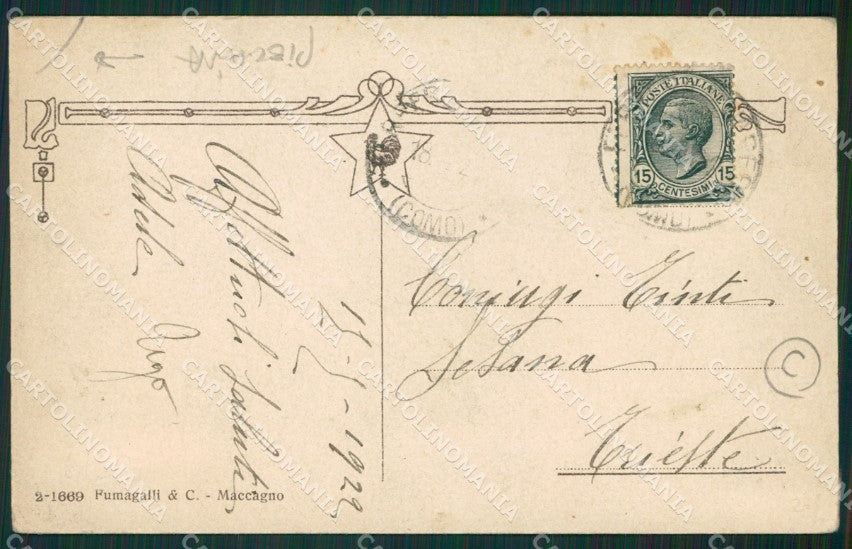 PIERINA
POSTE ITALIANE
15 CENTESIMI 15
(COMO)
Affettuosi Saluti
Adele Ugo
15-5-1922
Coniugi Tinti
Sesana
Trieste
C
2-1669 Fumagalli & C. - Maccagno
CARTOLINOMANIA